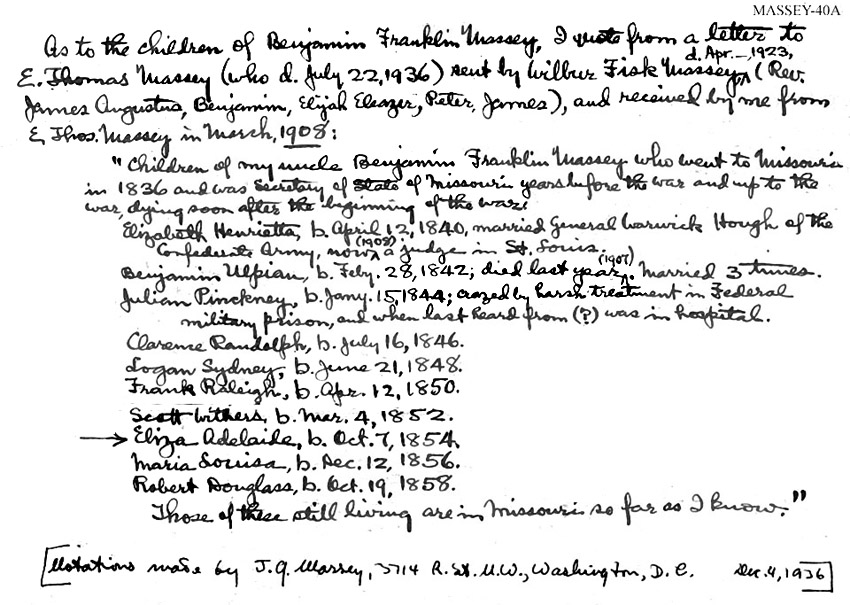 MASSEY-40A
As to the children of Benjamin Franklin Massey, I quote from a letter to
d. Apr. —, 1923,
E. Thomas Massey (who d. July 22, 1936) sent by Wilbur Fisk Massey ^ (Rev.
James Augustus, Benjamin, Elijah Eleazer, Peter, James), and received by me from
E. Thos. Massey in March, 1908:
"Children of my uncle Benjamin Franklin Massey who went to Missouri
in 1836 and was Secretary of State of Missouri years before the war and up to the
war, dying soon after the beginning of the war:
Elizabeth Henrietta, b. April 12, 1840, married General Warwick Hough of the
Confederate Army, now ^ (1908) a judge in St. Louis.
Benjamin Ulpian, b. Feby. 28, 1842; died last year ^ (1907). Married 3 times.
Julian Pinckney, b. Jany. 15, 1844; crazed by harsh treatment in Federal
military prison, and when last heard from (?) was in hospital.
Clarence Randolph, b. July 16, 1846.
Logan Sydney, b. June 21, 1848.
Frank Raleigh, b. Apr. 12, 1850.
Scott Withers, b. Mar. 4, 1852.
→ Eliza Adelaide, b. Oct. 7, 1854.
Maria Louisa, b. Dec. 12, 1856.
Robert Douglass, b. Oct. 19, 1858.
Those of these still living are in Missouri so far as I know."
[Notations made by J. G. Massey, 3714 R. St. N.W., Washington, D. C. Dec. 4, 1936]